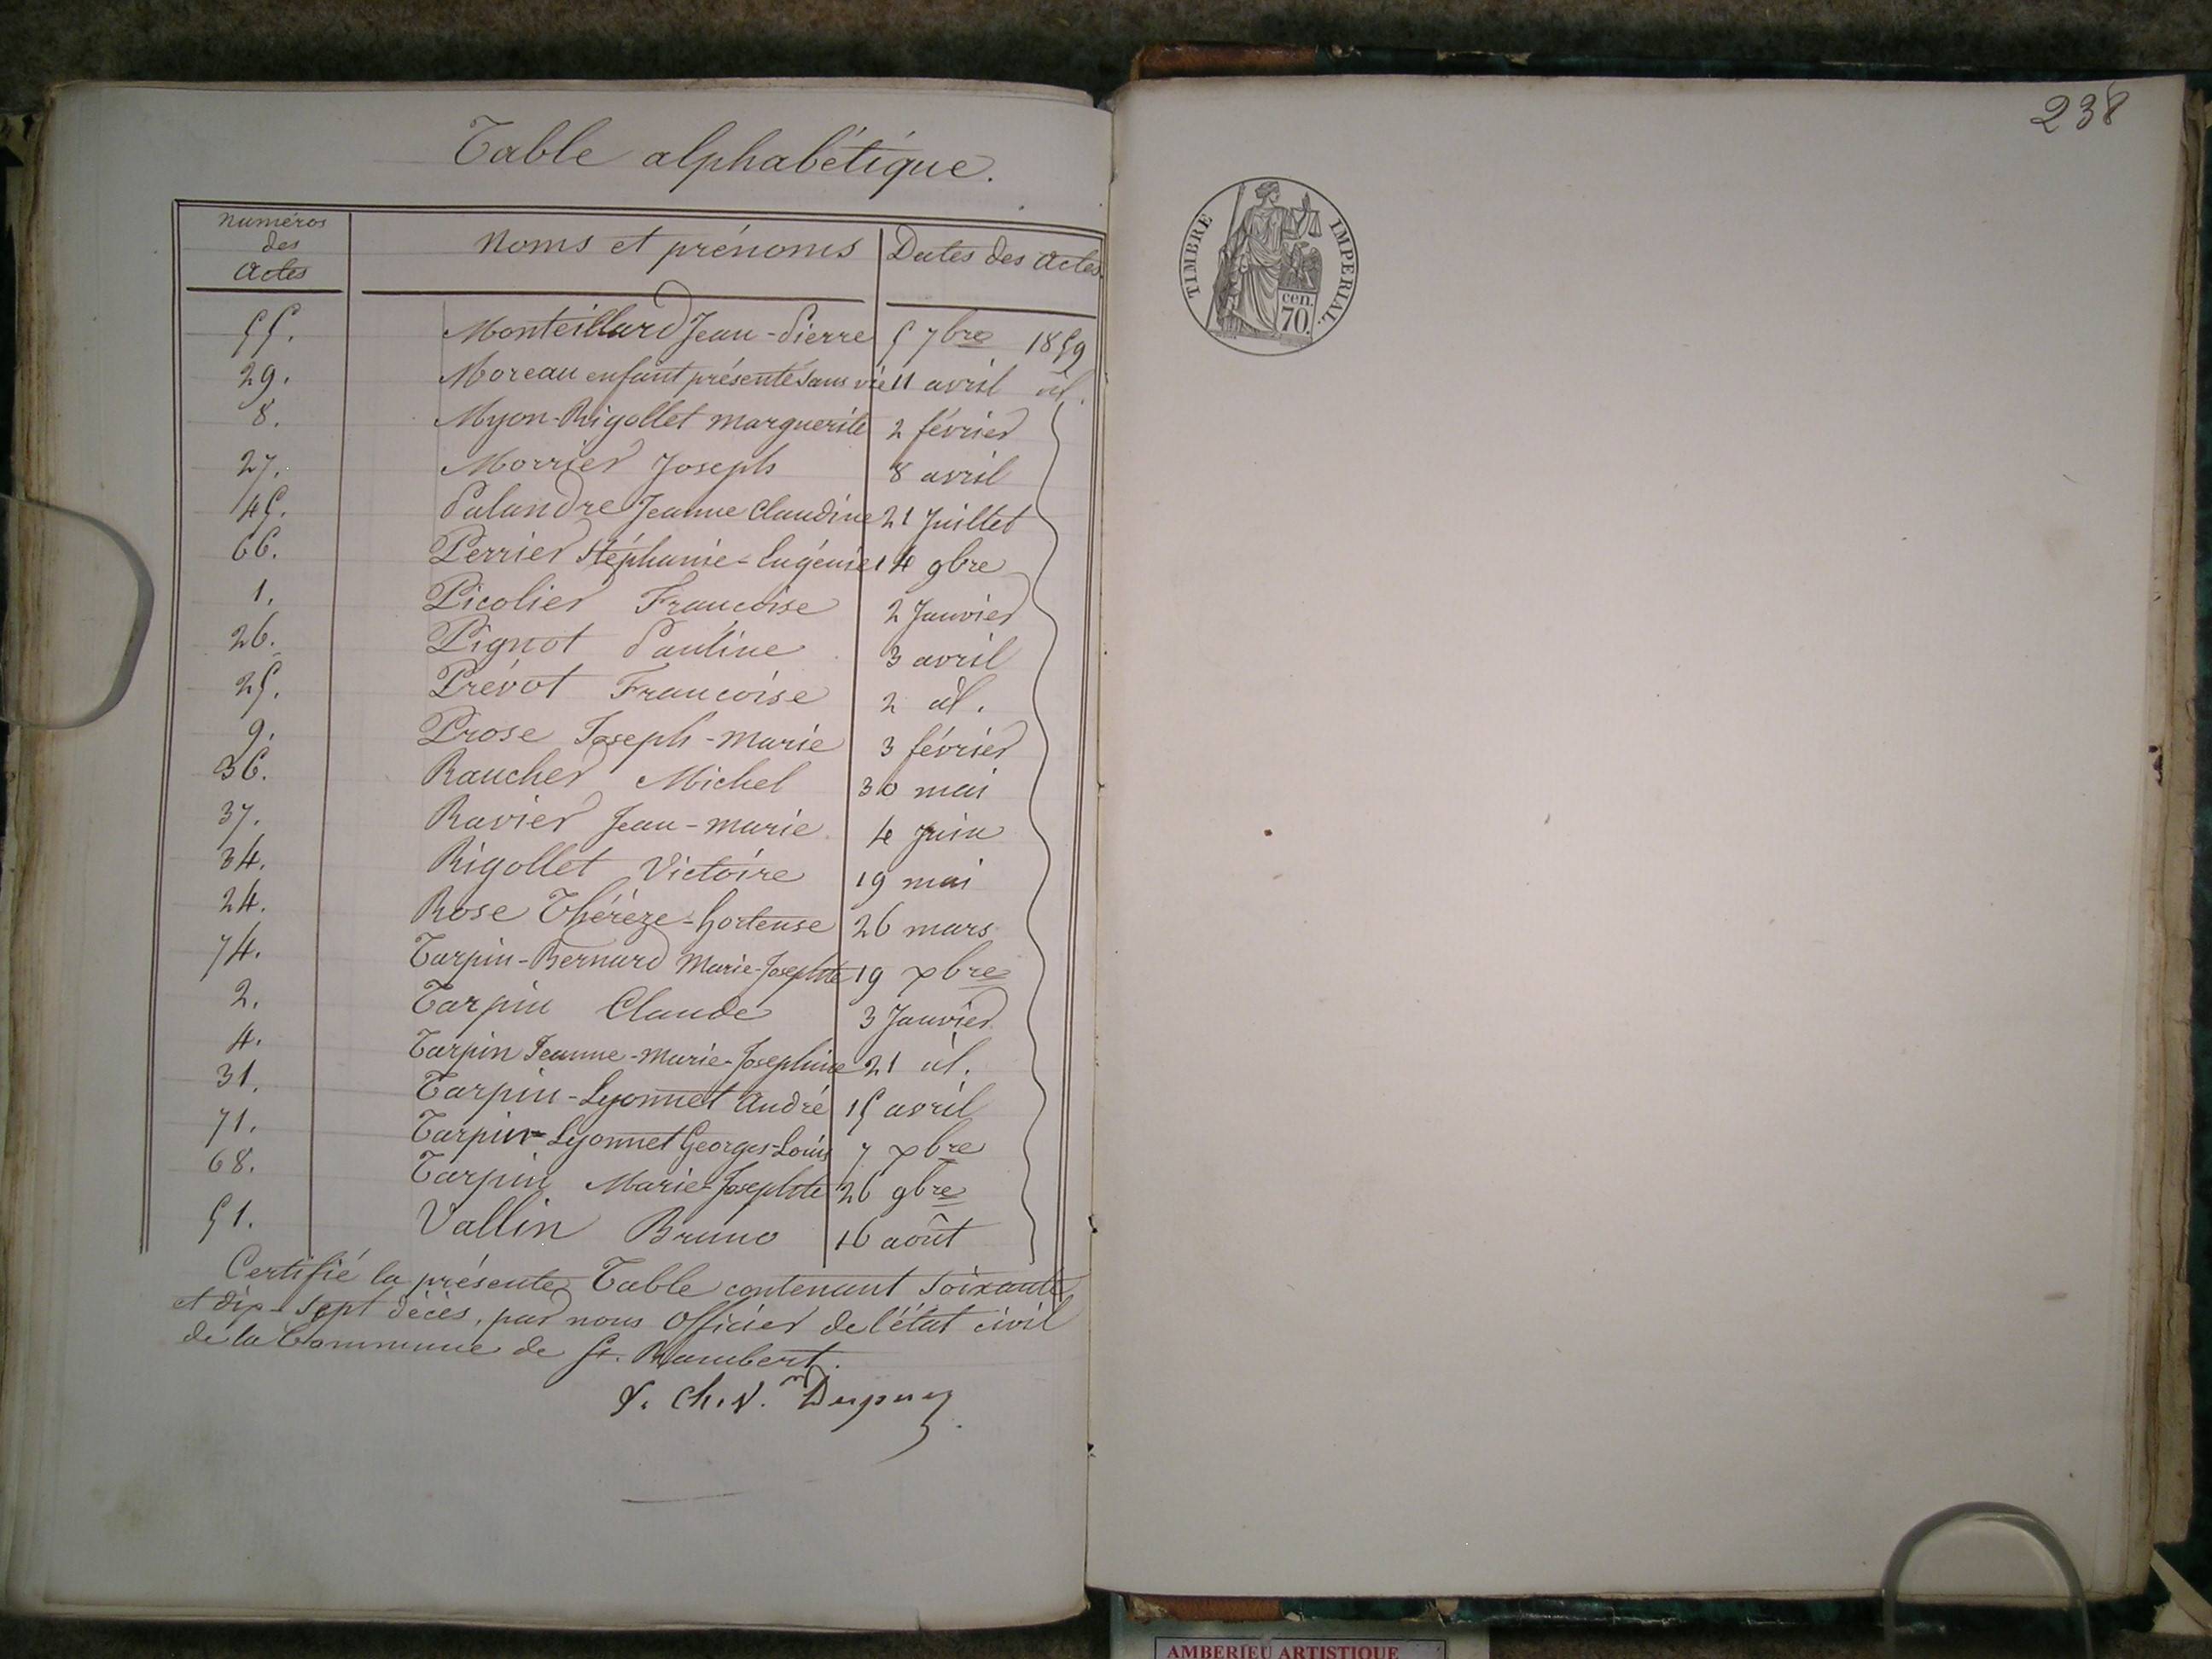 Table alphabétique.
Numéros des Actes | Noms et prénoms | Dates des Actes
55. Monteillard Jean-Pierre 5 7bre 1859
29. Moreau enfant présenté sans vie 11 avril id.
8. Myon-Rigollet Marguerite 2 février
27. Morrier Joseph 8 avril
45. Palandre Jeanne Claudine 21 Juillet
66. Perrier Stéphanie-Eugénie 14 9bre
1. Picolier Françoise 2 Janvier
26. Pignot Pauline 3 avril
25. Prévot Françoise 2 id.
9. Prose Joseph-Marie 3 février
36. Raucher Michel 30 mai
37. Ravier Jean-Marie 4 Juin
34. Rigollet Victoire 19 mai
24. Rose Thérèze-hortense 26 mars
74. Tarpin-Bernard Marie-Josephte 19 xbre
2. Tarpin Claude 3 Janvier
4. Tarpin Jeanne-Marie-Josephine 21 id.
31. Tarpin-Lyonnet André 15 avril
71. Tarpin-Lyonnet Georges-Louis 7 xbre
68. Tarpin Marie-Josephte 26 9bre
51. Vallin Bruno 16 août
Certifié la présente Table contenant soixante
et dix-sept décès, par nous Officier de l'état civil
de la Commune de St. Rambert.
238
TIMBRE IMPERIAL.
cen.
70.
AMBERIEU ARTISTIQUE